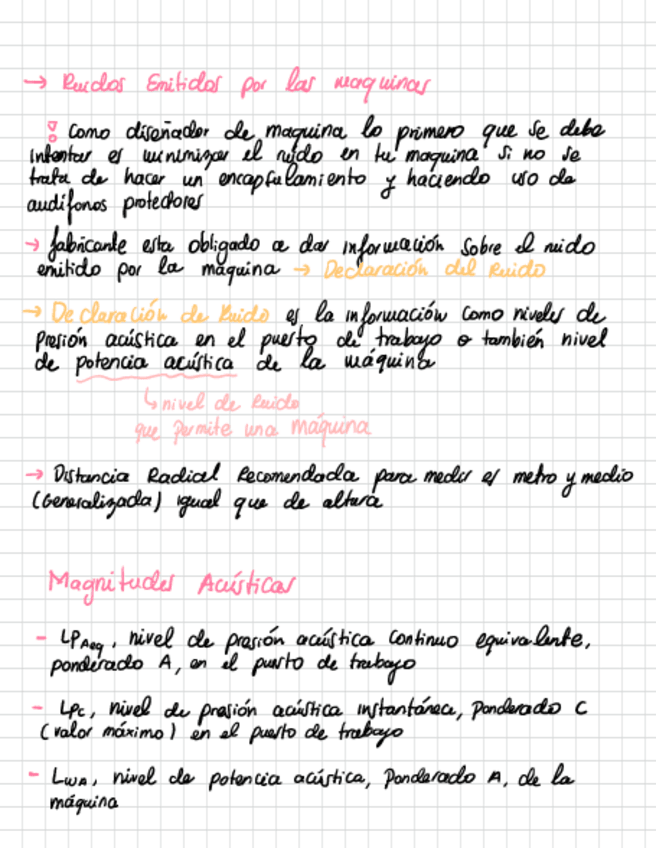 → Ruidos Emitidos por las maquinas
! Como diseñador de maquina lo primero que se debe
intentar es minimizar el ruido en tu maquina si no se
trata de hacer un encapsulamiento y haciendo uso de
audífonos protectores
→ fabricante esta obligado a dar información sobre el ruido
emitido por la máquina → Declaración del Ruido
→ Declaración de Ruido es la información como niveles de
Presión acústica en el puesto de trabajo o también nivel
de potencia acústica de la máquina
↳ nivel de Ruido
que permite una máquina
→ Distancia Radial Recomendada para medir es metro y medio
(Generalizada) igual que de altura
Magnitudes Acústicas
- LPAeq, nivel de presión acústica continuo equivalente,
ponderado A, en el puesto de trabajo
- LPC, nivel de presión acústica instantánea, Ponderado C
(valor máximo) en el puesto de trabajo
- LWA, nivel de potencia acústica, Ponderado A, de la
máquina